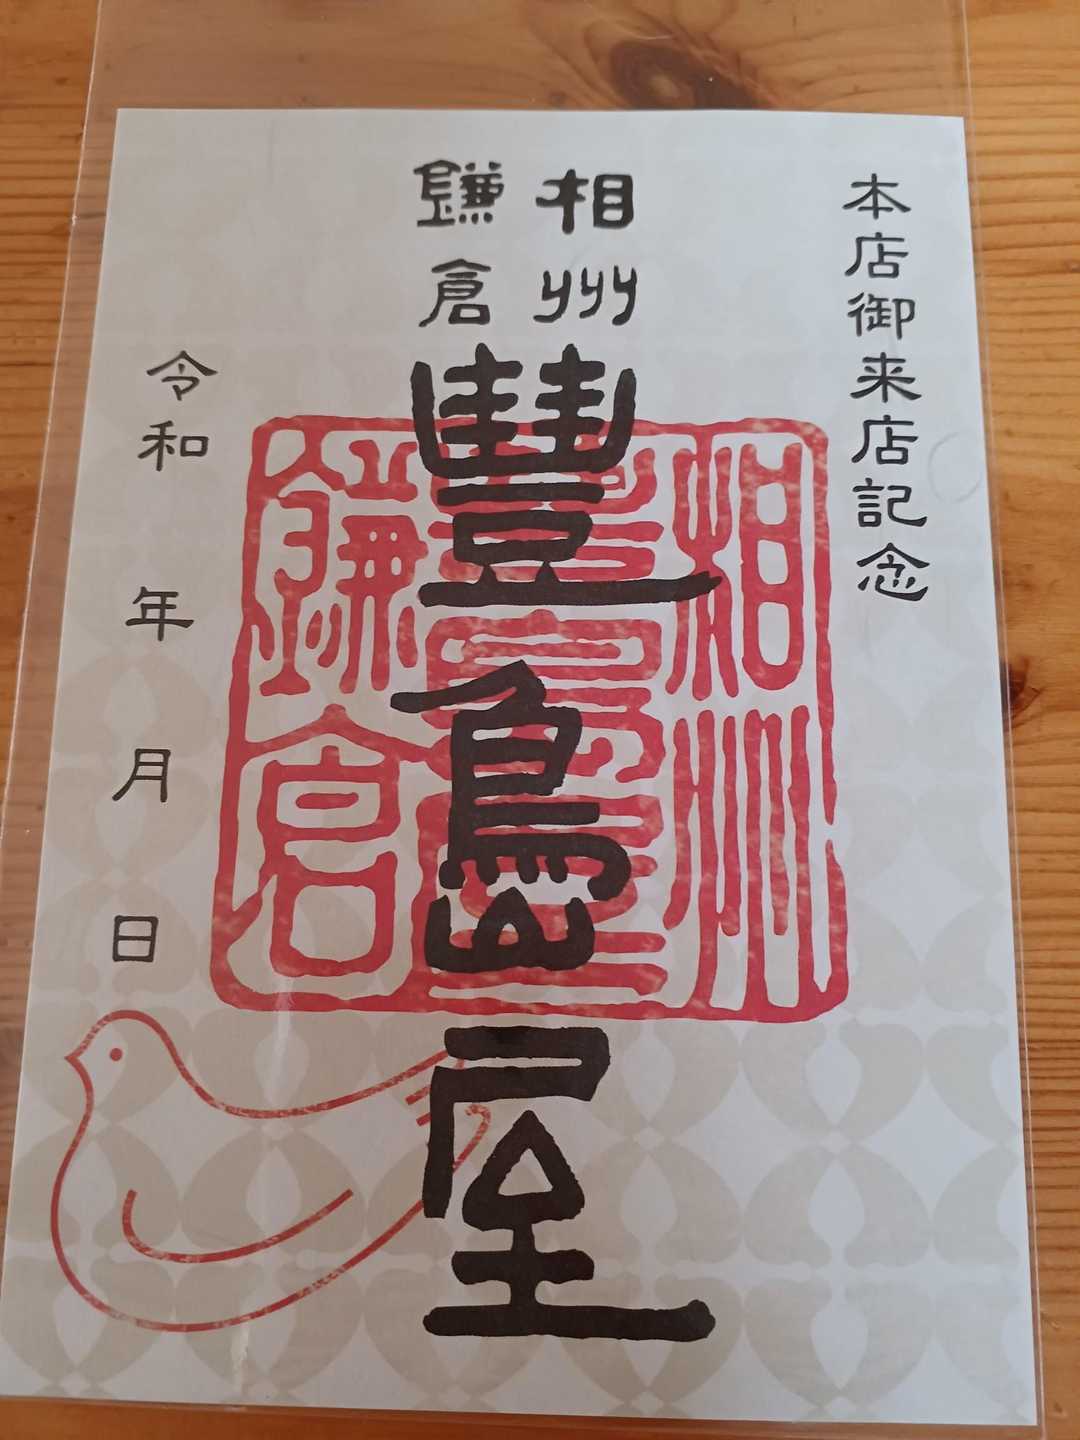 本店御来店記念
相州
鎌倉
豐島屋
相州
豊島屋
鎌倉
令和 年 月 日